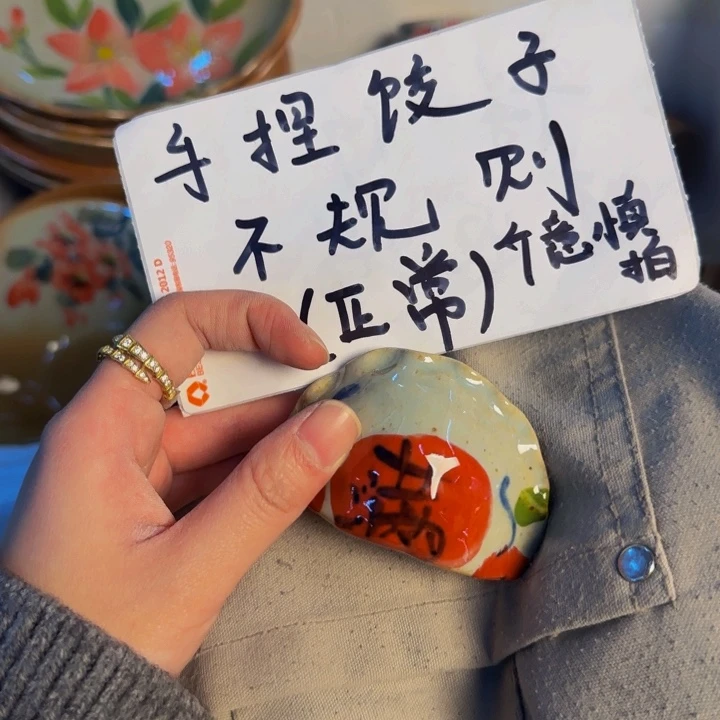 手捏饺子
不规则
(正常)介意慎拍
2012 D